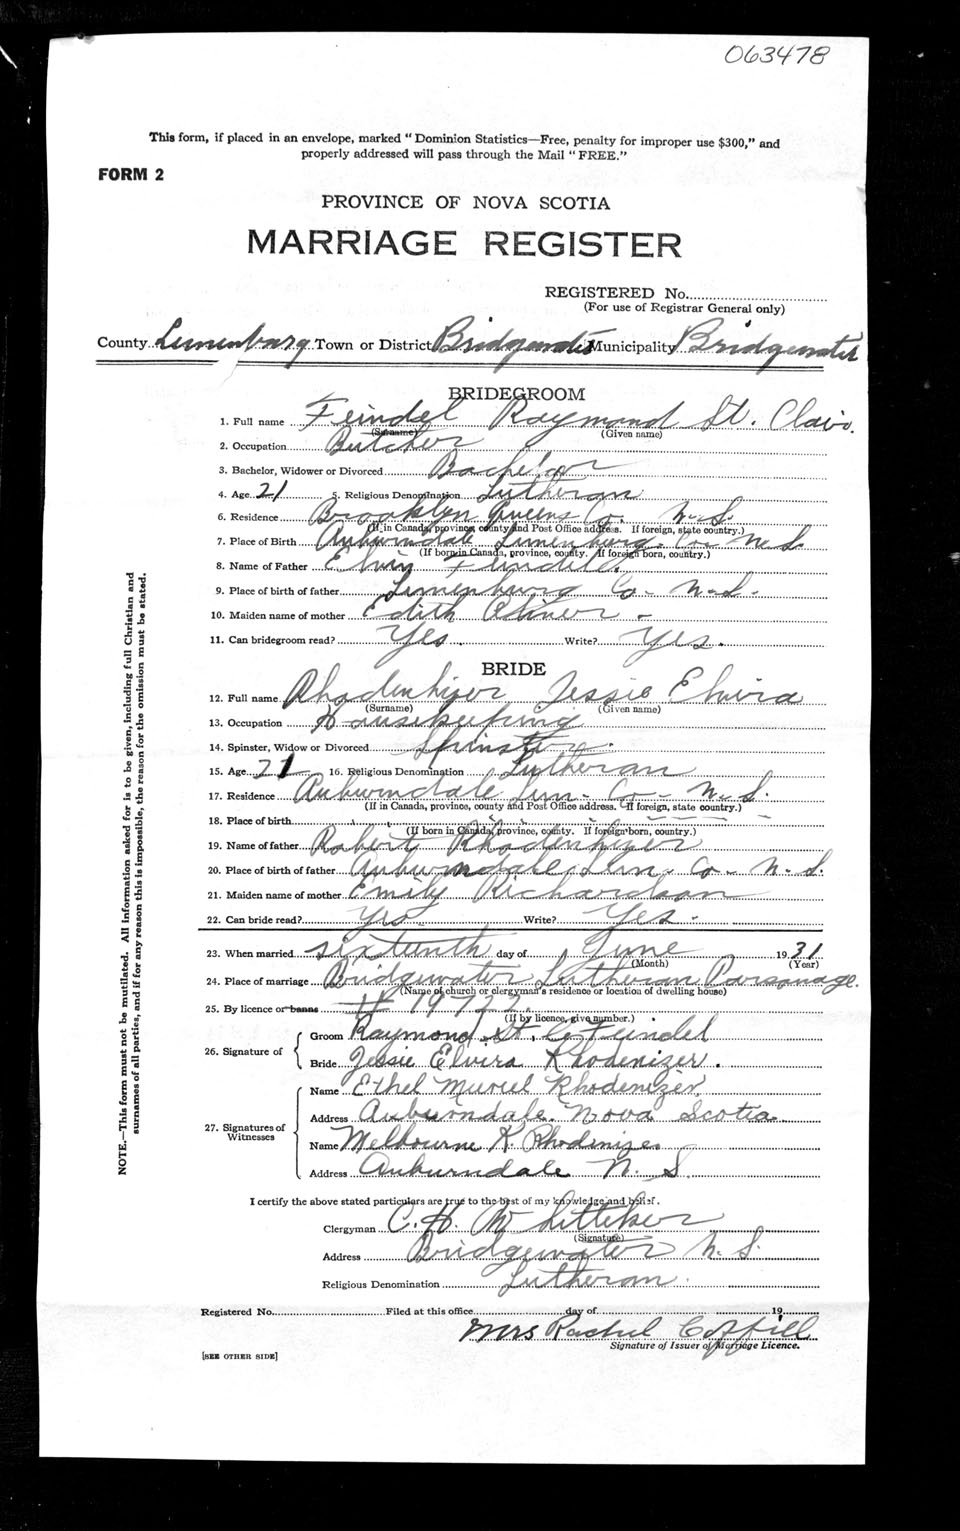 063478
This form, if placed in an envelope, marked "Dominion Statistics—Free, penalty for improper use $300," and
properly addressed will pass through the Mail "FREE."
FORM 2
PROVINCE OF NOVA SCOTIA
MARRIAGE REGISTER
REGISTERED No.
(For use of Registrar General only)
County Lunenburg Town or District Bridgewater Municipality Bridgewater
BRIDEGROOM
1. Full name Feindel Raymond St. Clair.
(Surname) (Given name)
2. Occupation Butcher
3. Bachelor, Widower or Divorced Bachelor
4. Age 21 5. Religious Denomination Lutheran
6. Residence Brooklyn Queens Co. N.S.
(If in Canada, province, county and Post Office address. If foreign, state country.)
7. Place of Birth Auburndale Lunenburg Co. N.S.
(If born in Canada, province, county. If foreign born, country.)
8. Name of Father Elvin Feindel.
9. Place of birth of father Lunenburg Co- N.S.
10. Maiden name of mother Edith
11. Can bridegroom read? Yes. Write? Yes.
BRIDE
12. Full name Rhodenhizer Jessie Elvira
(Surname) (Given name)
13. Occupation Housekeeping
14. Spinster, Widow or Divorced Spinster.
15. Age 21 16. Religious Denomination Lutheran
17. Residence Auburndale Lun- Co- N.S.
(If in Canada, province, county and Post Office address. If foreign, state country.)
18. Place of birth
(If born in Canada, province, county. If foreign born, country.)
19. Name of father Robert Rhodenhizer
20. Place of birth of father Auburndale, Lun. Co- N.S.
21. Maiden name of mother Emily Richardson
22. Can bride read? Yes Write? Yes.
23. When married sixteenth day of June 1931
(Month) (Year)
24. Place of marriage Bridgewater Lutheran Parsonage.
(Name of church or clergyman's residence or location of dwelling house)
25. By licence or banns
(If by licence, give number.)
26. Signature of
Groom Raymond St. C. Feindel
Bride Jessie Elvira Rhodenizer.
27. Signatures of Witnesses
Name Ethel Muriel Rhodenizer
Address Auburndale. Nova Scotia
Name Melbourne K. Rhodenizer
Address Auburndale N. S.
I certify the above stated particulars are true to the best of my knowledge and belief.
Clergyman C. H. Whitteker
(Signature)
Address Bridgewater N.S.
Religious Denomination Lutheran.
Registered No. Filed at this office day of 19
Mrs Rachel Coffill
Signature of Issuer of Marriage Licence.
[SEE OTHER SIDE]
NOTE.—This form must not be mutilated. All information asked for is to be given, including full Christian and
surnames of all parties, and if for any reason this is impossible, the reason for the omission must be stated.